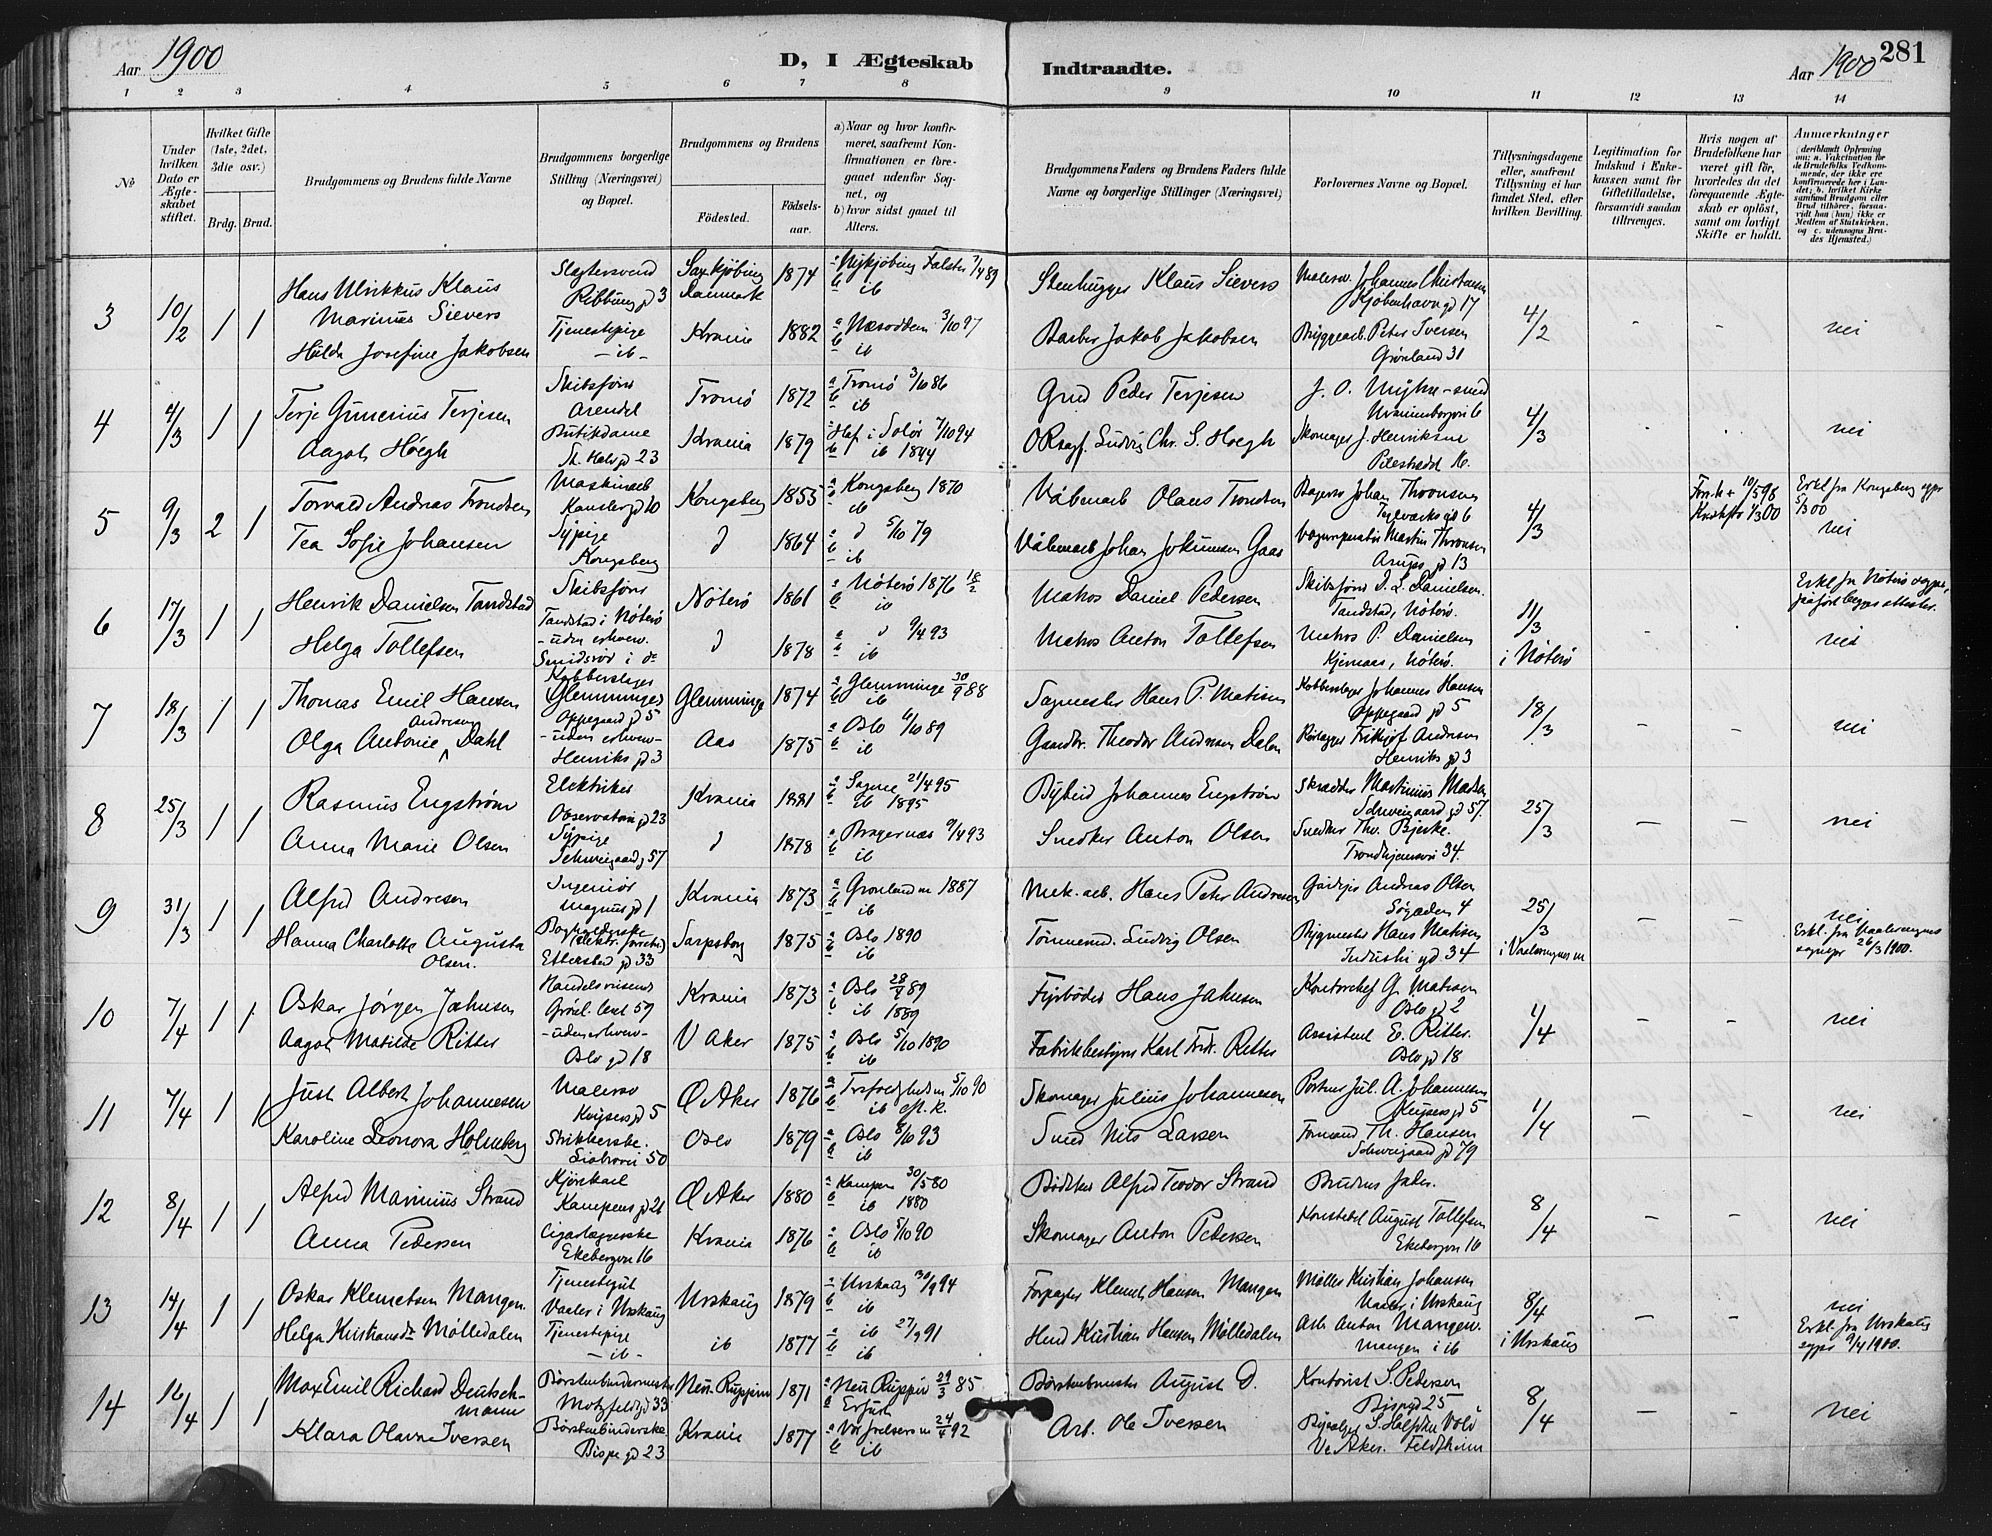 Aar 1900
D, I Ægteskab
Indtraadte.
Aar 1900
281
1 2 3 4 5 6 7 8 9 10 11 12 13 14
No
Under hvilken Dato er Ægteskabet stiftet.
Hvilket Gifte (1ste, 2det, 3die osv.)
Brdg. Brud.
Brudgommens og Brudens fulde Navne
Brudgommens borgerlige Stilling (Næringsvei) og Bopæl.
Brudgommens og Brudens
Fødested.
Fødselsaar.
a) Naar og hvor konfirmeret, saafremt Konfirmationen er foregaaet udenfor Sognet, og
b) hvor sidst gaaet til Alters.
Brudgommens Faders og Brudens Faders fulde Navne og borgerlige Stillinger (Næringsvei)
Forlovernes Navne og Bopæl.
Tillysningsdagene eller, saafremt Tillysning ei har fundet Sted, efter hvilken Bevilling.
Legitimation for Indskud i Enkekassen samt for Giftetilladelse, forsaavidt saadan tiltrænges.
Hvis nogen af Brudefolkene har været gift før, hvorledes da det foregaaende Ægteskab er opløst, samt om lovligt Skifte er holdt.
Anmærkninger
(deriblandt Oplysning om: a. Vakcination for de Brudefolks Vedkommende, der ikke ere konfirmerede her i Landet; b. hvilket Kirkesamfund Brudgom eller Brud tilhører, forsaavidt han (hun) ikke er Medlem af Statskirken, og c. udensogns Brudes Hjemsted.)
3 10/2 1 1
Hans Ulrikkus Klaus Marinus Sievers
Slagtersvend
Saxkjøbing Danmark 1874
a Nykjøbing Falster 7/4 89
b ib
Stenhugger Klaus Sievers
Malersv. Johannes Christensen
Kjøbenhavngd 17
4/2 - - nei
Hilda Josefine Jakobsen
Tjenestepige
- ib -
Krania 1882
a Næsodden 3/10 97
b ib
Barber Jakob Jakobsen
Bryggearb. Peter Iversen
Grønland 31
4 4/3 1 1
Terje Gunerius Terjesen
Skibsfører
Arendal
Tromø 1872
a Tromø 3/10 86
b ib
Grd Peder Terjesen
Uranienborgvei 6
4/3 nei
Aagot Høegh
Butikdame
St. Halvgd 23
Krania 1879
a Hof i Solør 7/10 94
b ib 1894
Skomager J. Henriksen
Pilestrædet 16.
5 9/3 2 1
Torvald Andreas Trondsen
Maskinarb
Kanslergd 10
Kongsberg 1855
a Kongsberg 1870
b ib
Våbenarb Olaus Trondsen
Bager Johan Thronsen
4/3
10/5 98
Erkl fra Kongsberg
5/3 00
nei
Tea Sofie Johansen
Sypige
Kongsberg
1864
a 5/10 79
b ib
Våbenarb Johan Gaas
Martin Thronsen
Arupsgd 13
6 17/3 1 1
Henrik Danielsen Tandstad
Skibsfører
Tandstad i Nøterø
Nøterø 1861
a Nøterø 1876 18/2
b ib
Matros Daniel Pedersen
Skibsfører D. L. Danielsen.
Tandstad, Nøterø.
11/3
i Nøterø
Erkl fra Nøterø
nei
Helga Tollefsen
- uden erhverv.
Smidsrød i do
1878
a 9/4 93
b ib
Matros Anton Tollefsen
Matros P. Danielsen
Kjernaas, Nøterø.
7 18/3 1 1
Thomas Emil Hansen
Kobberslager
Glemminge
Oppegaardgd 5
Glemminge 1874
a Glemminge 30/9 88
b ib
Sagmester Hans P. Matisen
Kobberslager Johannes Hansen
Oppegaardgd 5
18/3 - - nei
Olga Antonie Andresen Dahl
- uden erhverv -
Henriksgd 3
Aas 1875
a Oslo 6/10 89
b ib
Gaardbr. Theodor Andresen Dalen
Rørlægger Fritjof Andresen
Henriksgd 3
8 25/3 1 1
Rasmus Engstrøm
Elektriker
Observatoriegd 23
Krania 1881
a Sagene 21/4 95
b ib 1895
Bybud Johannes Engstrøm
Skrædder Martinius Madsen
Schweigaardgd 57.
25/3 - - nei
Anna Marie Olsen
Sypige
Schweigaardg 57
1878
a Bragernæs 9/4 93
b ib
Snedker Anton Olsen
Snedker Thv. Bjerke.
Trondhjemsvei 34.
9 31/3 1 1
Alfred Andresen
Ingeniør
Magnusgd 1
Krania 1873
a Grønland m 1887
b ib
Mek. arb. Hans Peter Andresen
Andreas Olsen
Søgaden 4
25/3
i Vaalerengens m
- - nei
Erkl. fra Vaalerengens
sognepr 26/3 1900.
Hanna Charlotte Augusta Olsen.
Bogholderske
Sarpsborg 1875
a Oslo 1890
b ib
Tømmermd. Ludvig Olsen
Bygmester Hans Matisen
Industrigd 34
10 7/4 1 1
Oskar Jørgen Jahnsen
Handelsreisende
Krania 1873
a Oslo 28/4 89
b ib 1889
Fyrbøder Hans Jahnsen
Kontorchef G. Matisen
Oslogd 2
1/4 - - nei
Aagot Matilde Ritter
- uden erhverv -
Oslogd 18
V Aker 1875
a Oslo 5/10 1890
b ib
Fabrikbestyrer Karl Fredr. Ritter
Assistent E. Ritter.
Oslogd 18
11 7/4 1 1
Just Albert Johannesen
Malersv
Keysersgd 5
Ø Aker 1876
a Trefoldighed m 5/10 90
b ib eft. k.
Skomager Julius Johannesen
Portner Jul. A. Johannesen
Keysersgd 5
1/4 - - nei
Karoline Leonora Holmberg
Strikkerske.
50
Oslo 1879
a Oslo 8/10 93
b ib
Smed Nils Larsen
Formand Th. Hansen
Schweigaardgd 79
12 8/4 1 1
Alfred Marinius Strand
Kjørekarl
Kampensgd 21
Ø Aker 1880
a Kampen 30/5 80
b ib 1880
Bødker Alfred Teodor Strand
Brudens Fader.
8/4 - - nei
Anna Pedersen
Cigarlagerske
Ekebergvn 16
Krania 1876
a Oslo 5/10 90
b ib
Skomager Anton Pedersen
Konstabel August Tollefsen
Ekebergvn 16
13 14/4 1 1
Oskar Klemetsen Mangen
Tjenestegut
Vaaler i Urskaug
Urskaug 1879
a Urskaug 30/9 94
b ib
Forpagter Klemet Hansen Mangen
Møller Kristian Johansen
Vaaler i Urskaug
8/4
i Urskaug
- - nei
Erkl. fra Urskaugs
sogpr 9/4 1900.
Helga Kristiansdr Mølledalen
Tjenestepige
- ib -
ib 1877
a ib 27/9 91
b ib
Kristian Hansen Mølledalen
Arb Anton Mangen.
Mangen i ib
14 16/4 1 1
Max Emil Richard Deutschmann
Børstenbindermester
Motzfeldtgd 33
Neu Ruppin 1871
a Neu Ruppin 29/3 85
b Erfurt
Børstenbmester August D.
Kontorist S. Pedersen
Bispegd 25
8/4 - - Nei
Klara Olava Iversen
Børstenbinderske
Bispegd 23
Krania 1877
a Vor frelsers m 24/4 92
b ib
Arb. Ole Iversen
V. Aker. Feldtheim